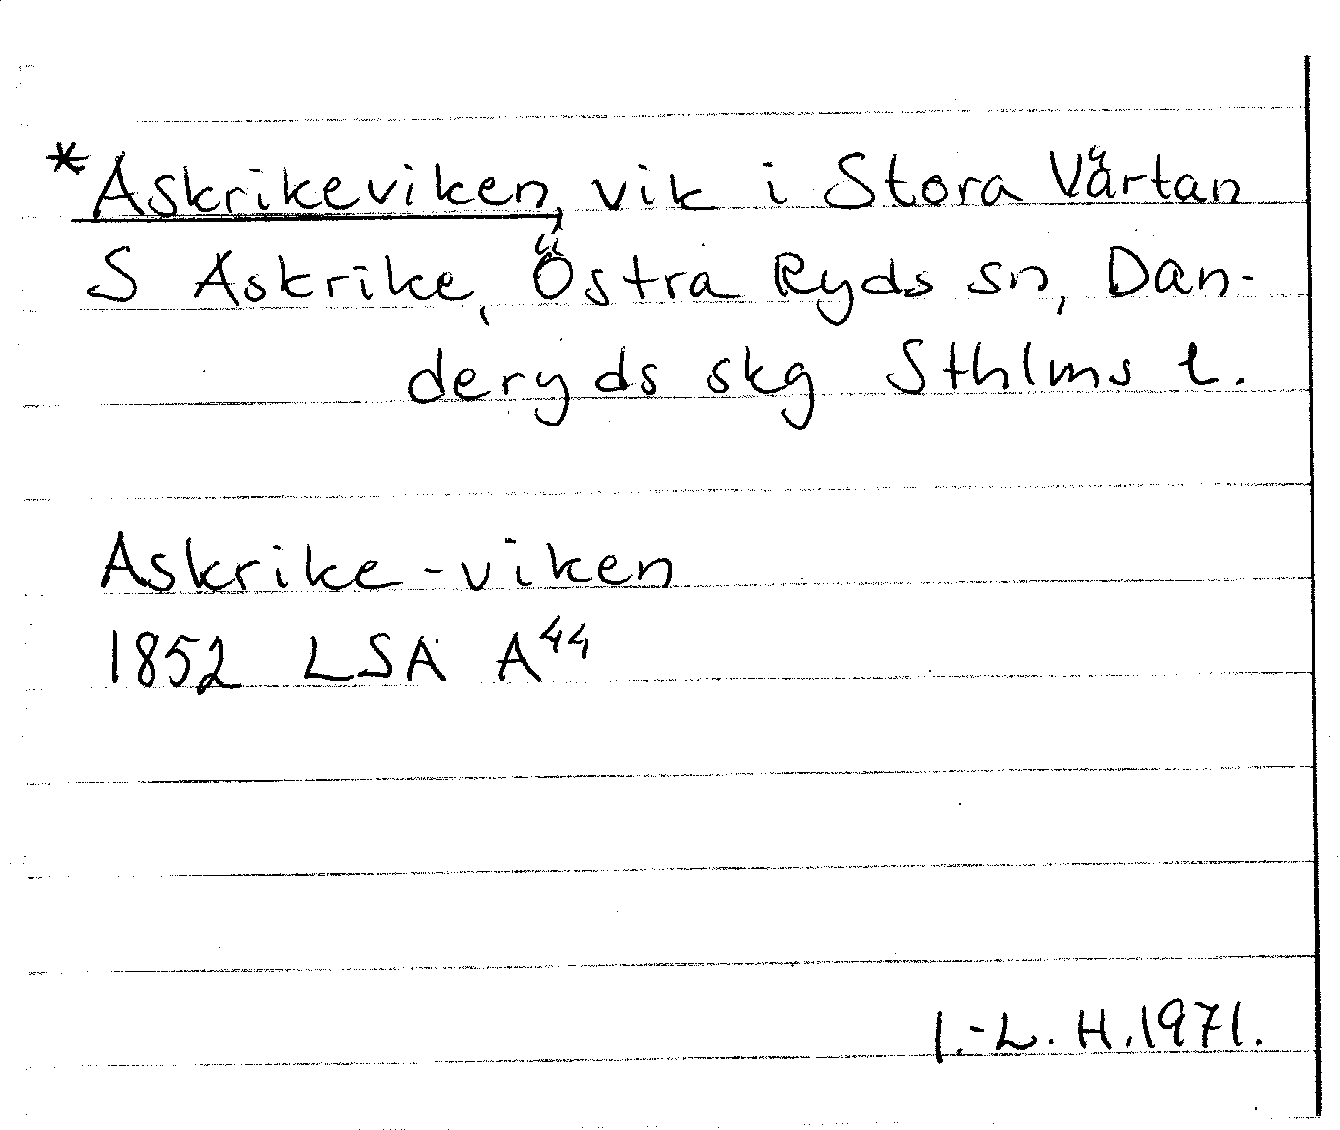 *Askrikeviken, vik i Stora Värtan
S Askrike, Östra Ryds sn, Dan-
deryds skg Sthlms l.
Askrike-viken
1852 LSA A44
I.-L. H. 1971.